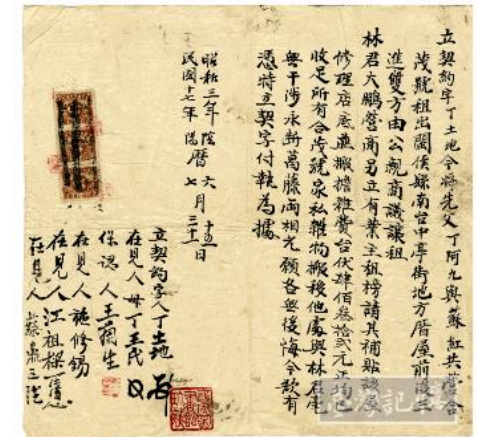 立契約字丁土地今將先父丁阿九與蘇紅共營合
茂號租出閩侯縣南台中亭街地方厝屋前進
進雙方由公親商議讓租
林君大鵬營商另立有業主租榜請其補貼該屋
修理店底並搬擔雜費台伏肆佰叁拾貳元正
收足所有合茂號家私雜物搬移他處與林君毫
無干涉永斷葛藤兩相允願各無後悔今欲有
憑特立契字付執為據
昭和三年陰曆六月十五日
民國十七年陽曆七月三十一日
立契約字人丁土地
在見人母丁王氏
保認人王爾生
在見人施修錫
在見人江祖樑
在見人